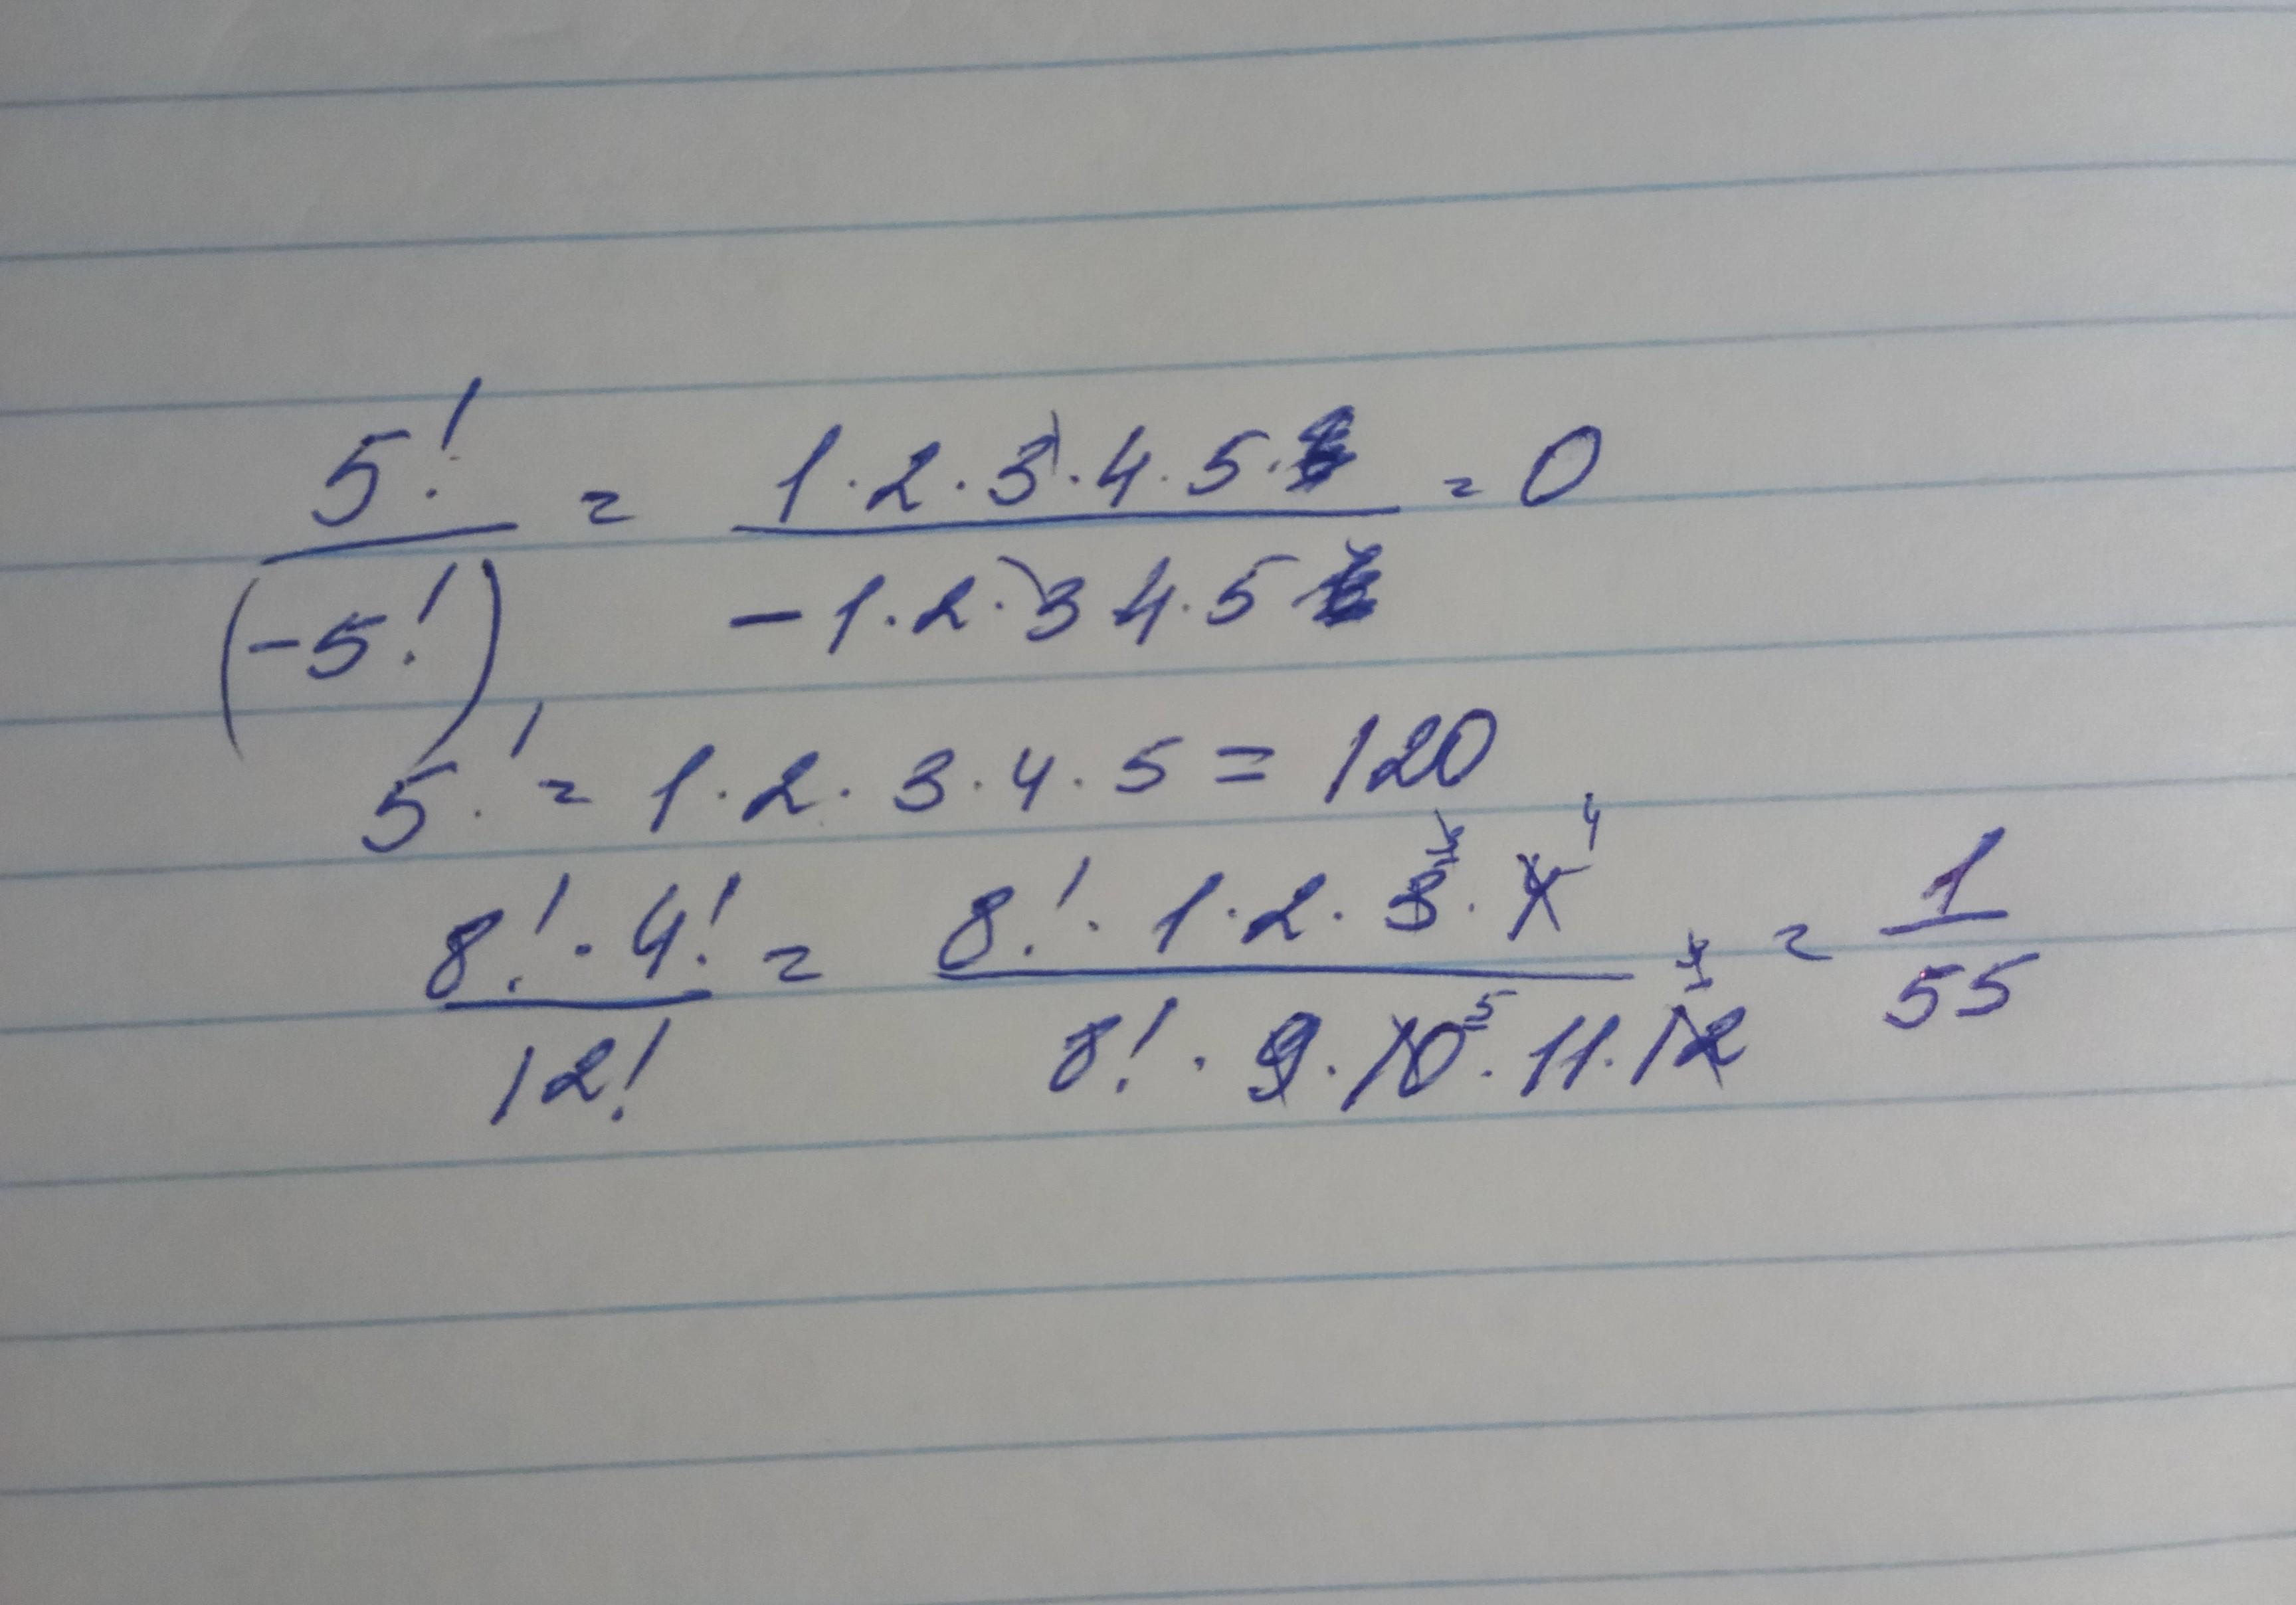 5! / (-5!) = 1·2·3·4·5· / -1·2·3 4·5 = 0
5! = 1·2·3·4·5 = 120
8!·4! / 12! = 8!·1·2·3·4 / 8!·9·10 5·11·12 = 1 / 55